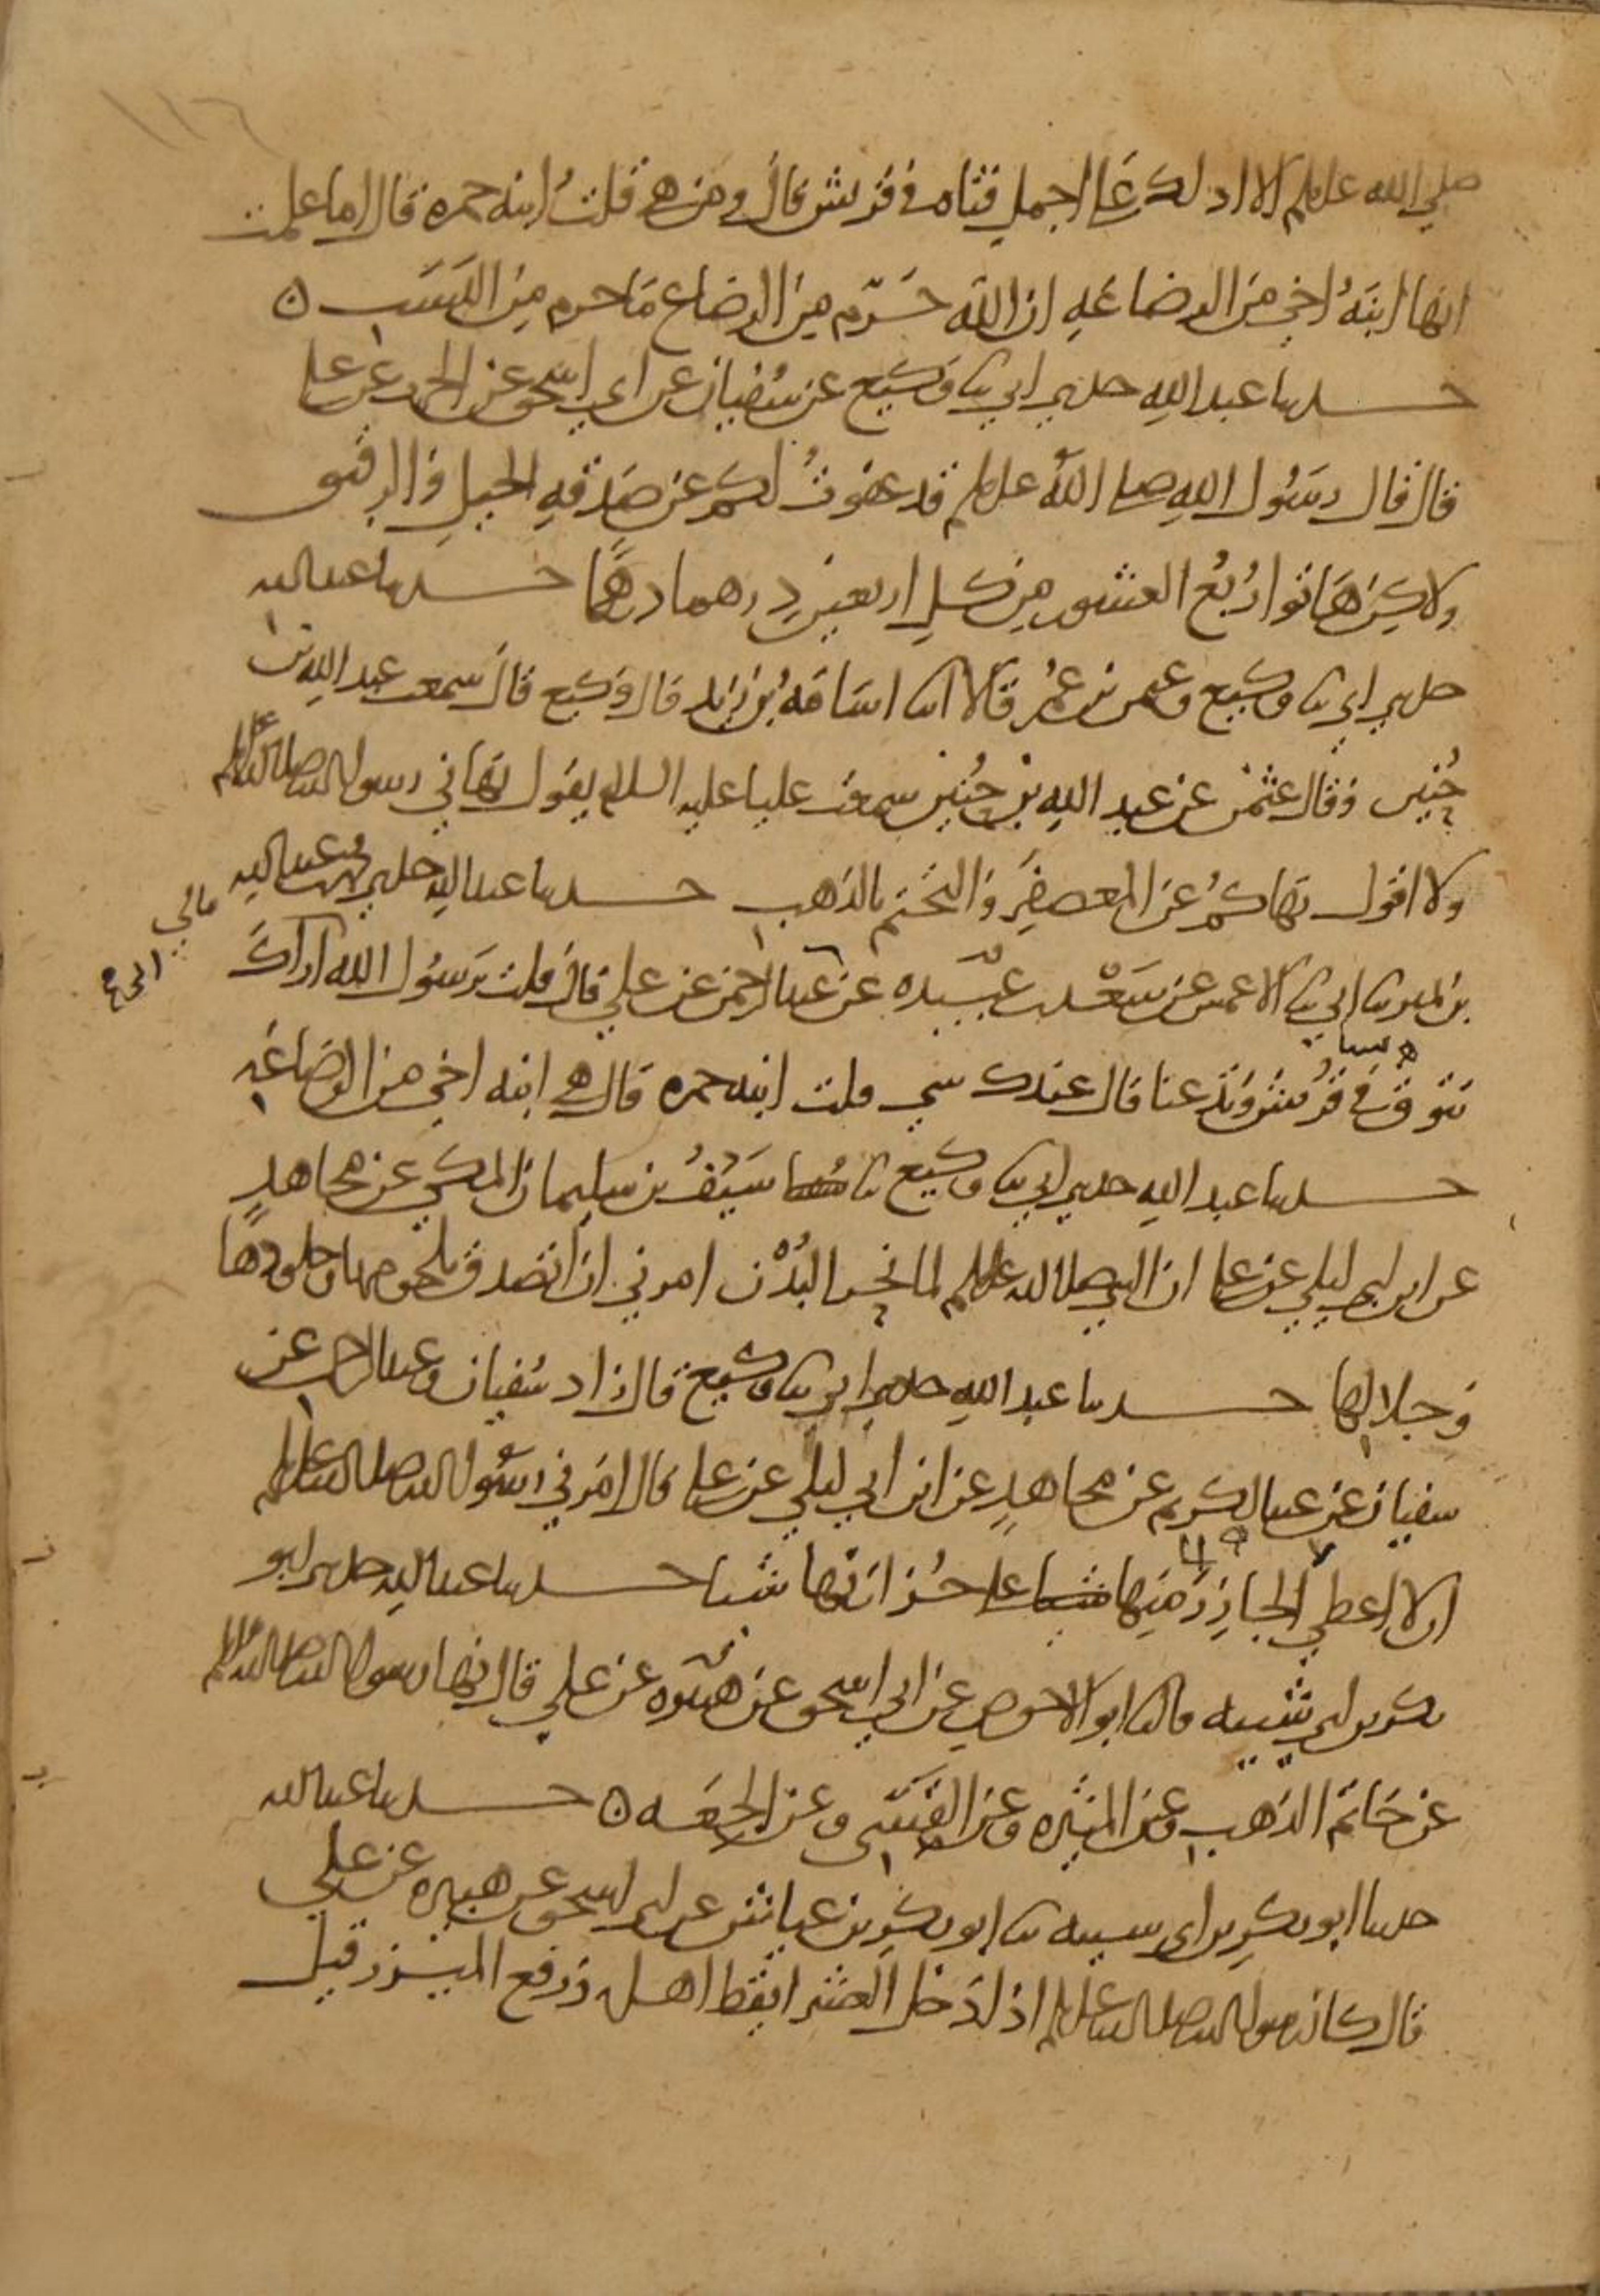 ١١٦
صلى الله عليه وسلم الا ادلك على اجمل فتاه في قريش قال ومن هي قلت ابنه حمزه قال اما علمت
انها ابنة اخي من الرضاعة ان الله حرّم من الرضاع ما حرم من النسب ه
حدثنا عبد الله حدثني ابي ثنا وكيع عن سفيان عن ابي اسحق عن الحرث عن علي
قال قال رسول الله صلى الله عليه وسلم قد عفوت لكم عن صدقة الخيل والرقيق
ولاكن هاتوا ربع العشور من كل اربعين درهما درهما حدثنا عبد الله
حدثني ابي ثنا وكيع وعثمن بن عمر قالا انا اسامة بن زيد قال وكيع قال سمعت عبد الله بن
حنين وقال عثمن عن عبد الله بن حنين سمعت عليا عليه السلام يقول نهاني رسول الله صلى الله عليه وسلم
ولا اقول نهاكم عن المعصفر والتختم بالذهب حدثنا عبد الله حدثني محمد بن عبد الله
بن نمير ثنا ابي ثنا الاعمش عن سعد بن عبيده عن ابي عبد الرحمن عن علي قال قلت يرسول الله اراك
مالي
تتوق في نساء قريش وتدعنا قال عندك شي قلت ابنه حمزه قال هي ابنه اخي من الرضاعة
حدثنا عبد الله حدثني ابي ثنا وكيع ثنا سيف بن سليمان المكي عن مجاهد
عن ابن ابي ليلى عن علي ان النبي صلى الله عليه وسلم لما نحر البدن امرني ان اتصدق بلحومها وجلودها
وجلالها حدثنا عبد الله حدثني ابي ثنا وكيع قال زاد سفيان وعبد الرحمن عن
سفيان عن عبد الكريم عن مجاهد عن ابن ابي ليلى عن علي قال امرني رسول الله صلى الله عليه وسلم
ان لا اعطي الجازر منها على جزارتها شيا حدثنا عبد الله حدثني ابو
بكر بن ابي شيبه قال ثنا ابو الاحوص عن ابي اسحق عن هبيره عن علي قال نهى رسول الله صلى الله عليه وسلم
عن خاتم الذهب وعن الميثره وعن القسي وعن الجعه ه حدثنا عبد الله
حدثنا ابو بكر بن ابي شيبه ثنا ابو بكر بن عياش عن ابي اسحق عن هبيره عن علي
قال كان رسول الله صلى الله عليه وسلم اذا دخل العشر ايقظ اهله ورفع الميزر قيل